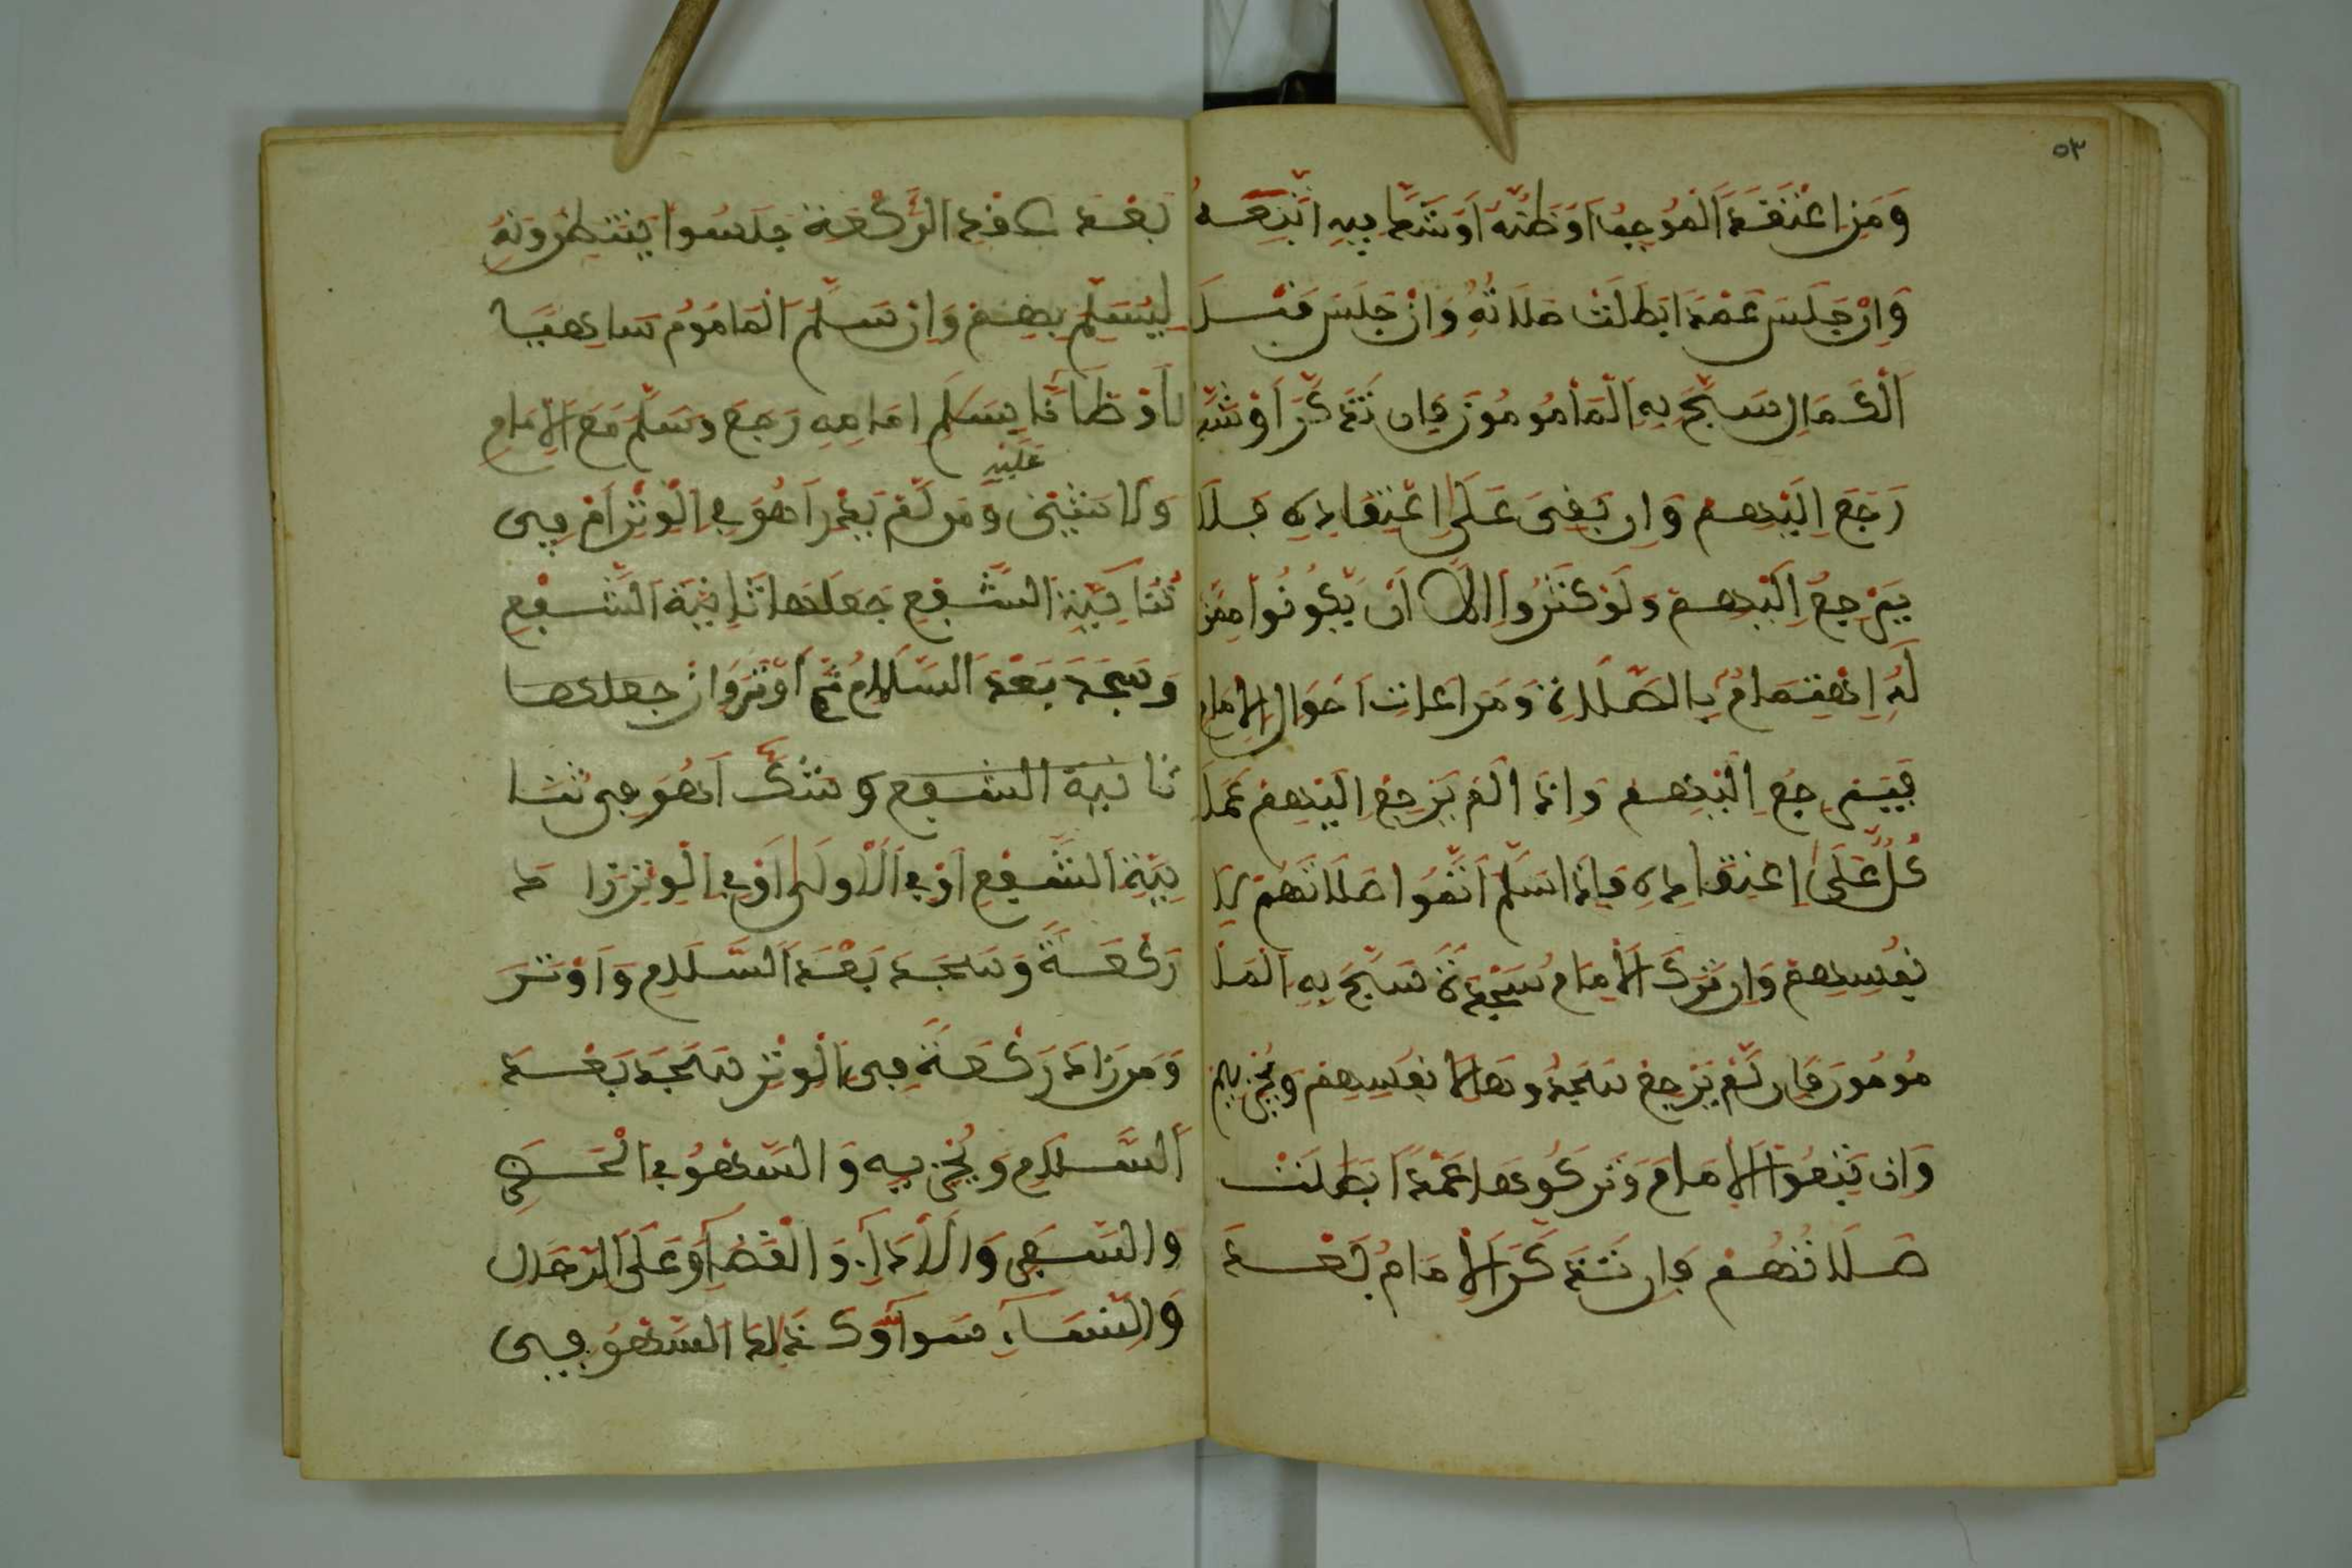 ٥٣
وَمَنِ اعْتَقَدَ الْمُوجِبَ اَوْ ظَنَّهُ اَوْ شَكَّ فِيهِ اتَّبَعَهُ
وَاِنْ جَلَسَ عَمْدًا بَطَلَتْ صَلَاتُهُ وَاِنْ جَلَسَ قَبْلَ
الْكَمَالِ سَبَّحَ بِهِ الْمَأْمُومُونَ فَاِن تَذَكَّرَ اَوْ شَكَّ
رَجَعَ اِلَيْهِمْ وَاِن بَقِىَ عَلَى اِعْتِقَادِهِ فَلَا
يَرْجِعُ اِلَيْهِمْ وَلَوْ كَثُرُوا اِلَّا اَن يَّكُونُوا مِمَّن
لَهُ اِهْتِمَامٌ بِالصَّلَاةِ وَمَراعَات اَحْوَالِ الْاِمَامِ
فَيَرْجِعُ اِلَيْهِمْ وَاِذَا لَمْ يَرْجِعْ اِلَيْهِمْ عَمَلَ
كُلٌّ عَلَى اِعْتِقَادِهِ فَاِذَا سَلَّمَ اَتَمُّوا صَلَاتَهُمْ لِاَ
نفُسِهِمْ وَاِن تَرَكَ الْاِمَامُ سَجْدَةً سَبَّحَ بِهِ الْمَا
مُومُونَ فَاِن لَّمْ يَرْجِعْ سَجَدُوهَا لِاَنفُسِهِمْ وَيُجْزِيهِمْ
وَاِن تَبِعُوا الْاِمَامَ وَتَرَكُوهَا عَمْدًا بَطَلَتْ
صَلَاتُهُمْ فَاِن تَذَكَّرَ الْاِمَامُ بَعْدَ
بَعْدَ عَقْدِ الرَّكْعَةِ جَلَسُوا يَنتَظِرُونَهُ
لِيُسَلِّم بِهِمْ وَاِنْ سَلَّمَ الْمَامُومُ سَاهِيًا
اَوْ ظَانًّا سَلَم اِمَامِهِ رَجَعَ وَسَلَّمَ مَعَ الْاِمَامِ
وَلَا شَيْئَ عَلَيْهِ وَمَن لَّمْ يَدْرِ اَهُوَ فِي الْوِتْرِ اَمْ فِى
ثَانِيَةِ الشَّفْعِ جَعَلَهَا ثَانِيَةَ الشَّفْعِ
وَسَجَدَ بَعْدَ السَّلَامِ ثُمَّ اَوْتَرَ وَاِنْ جعلها
ثانية الشفع وشكّ اَهُوَ فِى ثا
نِيَةِ الشَّفْعِ اَوْ فِي الْاُولَى اَوْ فِي الْوِتْرِ زاد
رَكْعَةً وَسَجَدَ بَعْدَ السَّلَامِ وَاَوْتَرَ
وَمَن زَادَ رَكْعَةً فِى الْوِتْرِ سَجَدَ بَعْدَ
السَّلَامِ وَيُجْزِيهِ وَالسَّهْوُ فِي الْحَضَرِ
وَالسَّفَرِ وَالْاَدَاءِ وَالْقَضَاءِ وَعَلَى الرِّجَالِ
وَالنِّسَاءِ سَوَاءٌ وَكَذَلِكَ السَّهْوُ فِى